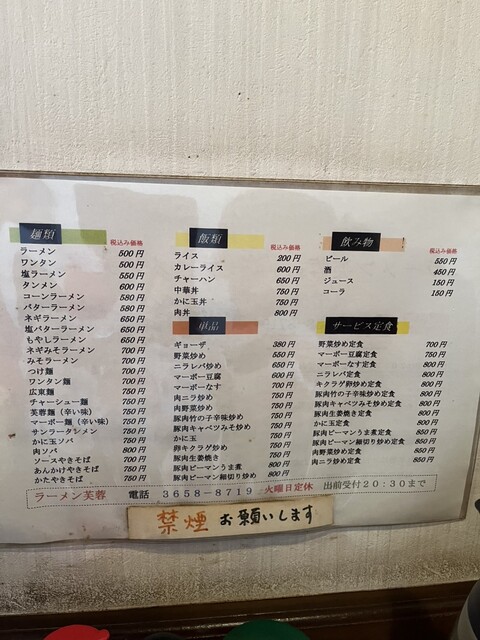 麺類 税込み価格
ラーメン 500円
ワンタン 500円
塩ラーメン 550円
タンメン 600円
コーンラーメン 580円
バターラーメン 580円
ネギラーメン 650円
塩バターラーメン 650円
もやしラーメン 650円
ネギみそラーメン 700円
みそラーメン 700円
つけ麺 700円
ワンタン麺 700円
広東麺 750円
チャーシュー麺 750円
芙蓉麺（辛い味） 750円
マーボー麺（辛い味） 750円
サンラータンメン 750円
かに玉ソバ 750円
肉ソバ 800円
ソースやきそば 700円
あんかけやきそば 750円
かたやきそば 750円
飯類 税込み価格
ライス 200円
カレーライス 600円
チャーハン 650円
中華丼 750円
かに玉丼 750円
肉丼 800円
単品
ギョーザ 380円
野菜炒め 550円
ニラレバ炒め 650円
マーボー豆腐 600円
マーボーなす 700円
肉ニラ炒め 750円
肉野菜炒め 750円
豚肉竹の子辛味炒め 750円
豚肉キャベツみそ炒め 750円
かに玉 750円
卵キクラゲ炒め 750円
豚肉生姜焼き 750円
豚肉ピーマンうま煮 800円
豚肉ピーマン細切り炒め 800円
飲み物 税込み価格
ビール 550円
酒 450円
ジュース 150円
コーラ 150円
サービス定食
野菜炒め定食 700円
マーボー豆腐定食 750円
マーボーなす定食 800円
ニラレバ定食 800円
キクラゲ卵炒め定食 800円
豚肉竹の子辛味炒め定食 800円
豚肉キャベツみそ炒め定食 800円
豚肉生姜焼き定食 800円
かに玉定食 800円
豚肉ピーマンうま煮定食 850円
豚肉ピーマン細切り炒め定食 850円
肉野菜炒め定食 850円
肉ニラ炒め定食 850円
ラーメン芙蓉 電話 3658-8719 火曜日定休 出前受付20:30まで
禁煙 お願いします